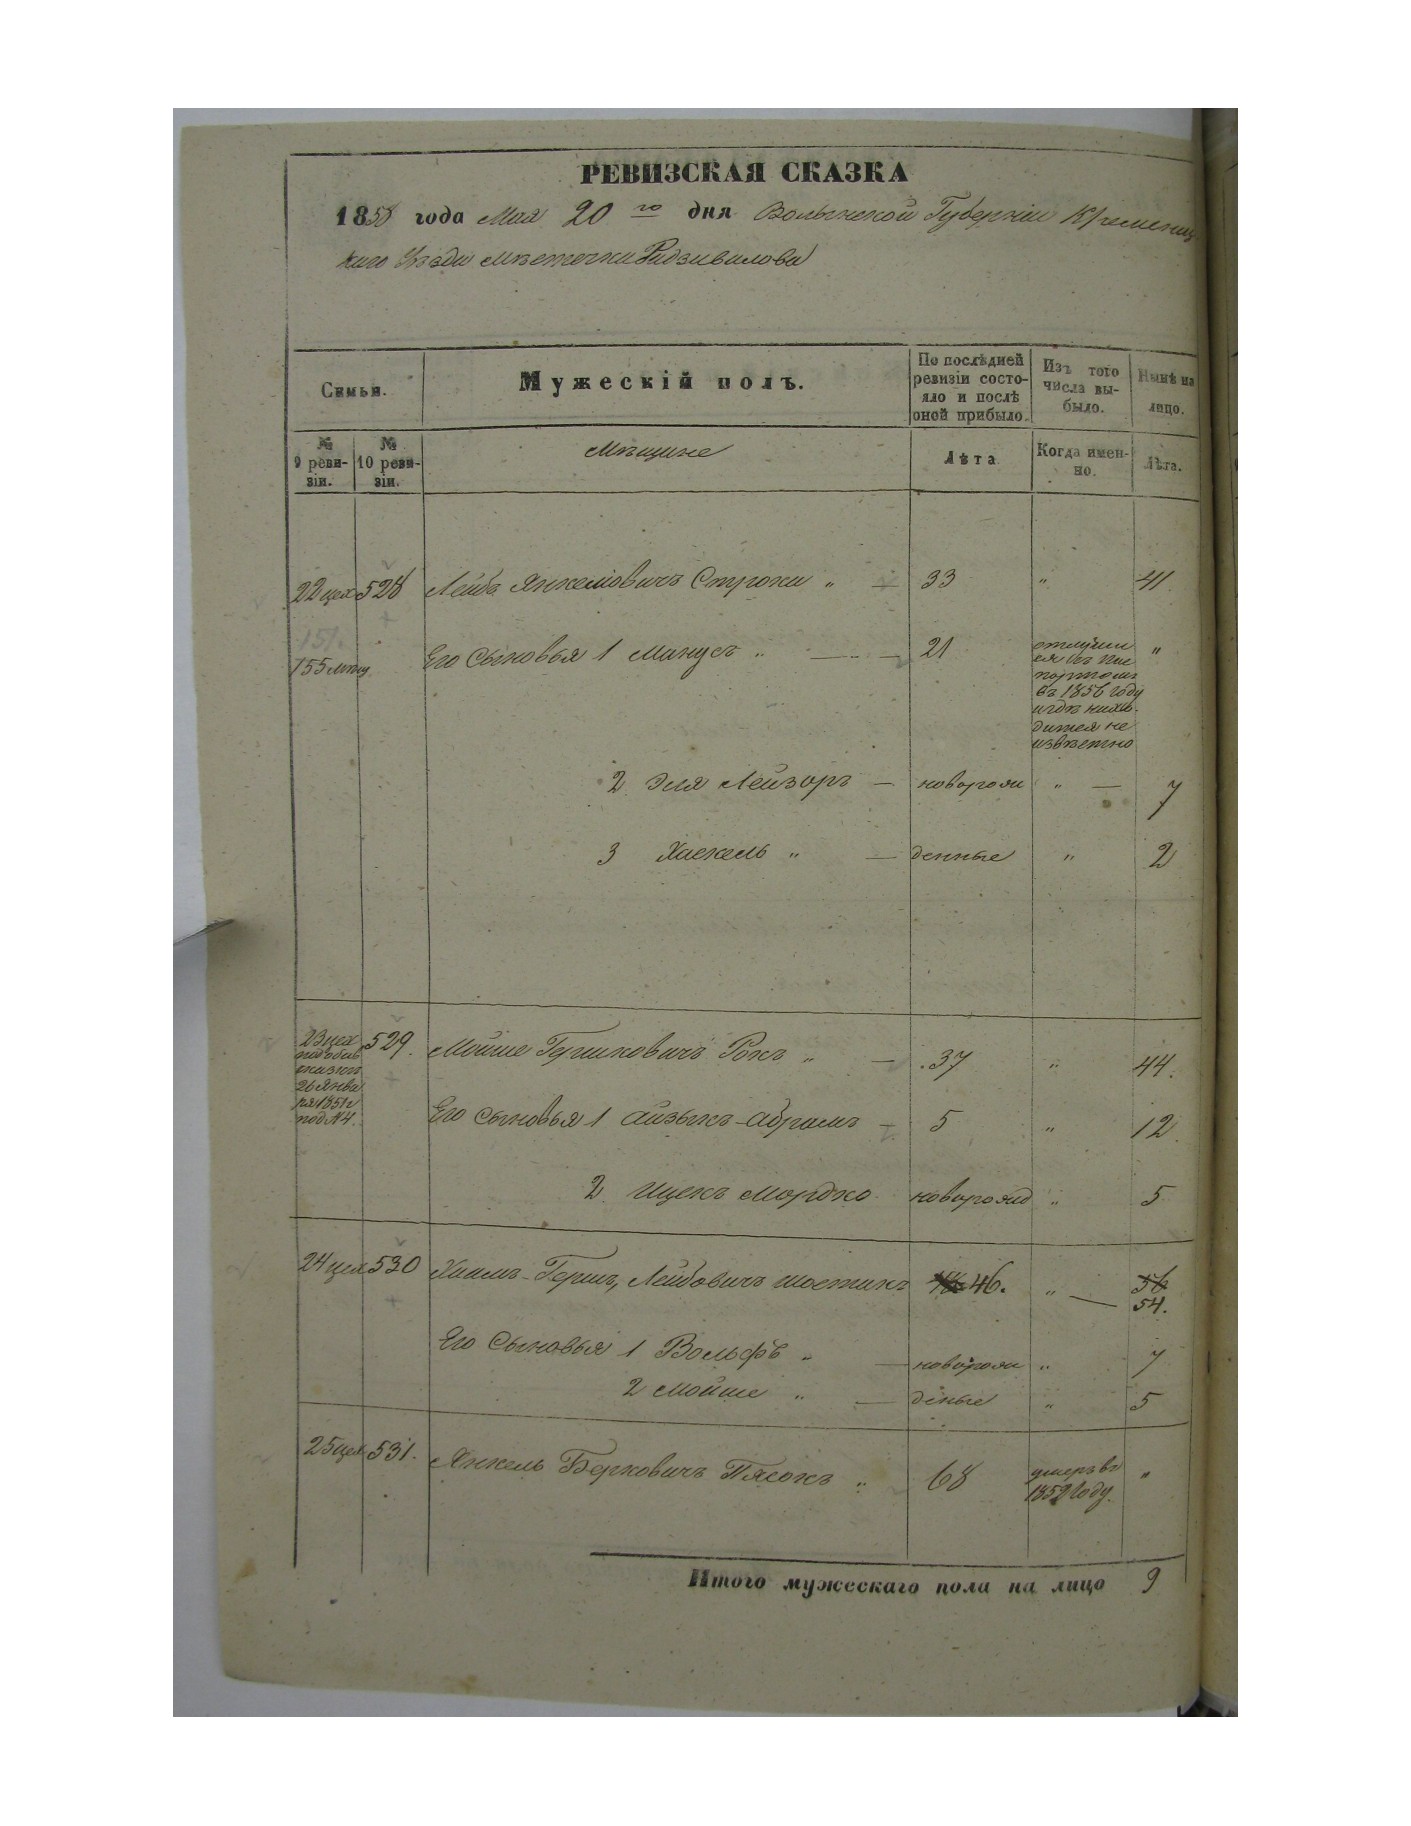 РЕВИЗСКАЯ СКАЗКА
1858 года Мая 20 го дня Волынской Губерніи Кременец
каго Уезда местечка Радзивилова
Семьи.
Мужескій полъ.
По послѣдней ревизіи состо-
яло и послѣ
оной прибыло.
Изъ того
числа вы-
было.
Нынѣ на
лицо.
№
9 реви-
зіи.
№
10 реви-
зіи.
Мещане
Лѣта
Когда имен-
но.
Лѣта.
22 цех 528 Лейба Янкелiовичъ Строки „ — 33 „ 41
151.
155 мещ Его Сыновья 1 Манусъ „ — 21 отлучил
ся съ пас
портомъ
въ 1856 году
и где нахо-
дится не
известно „
2 Эля Лейзоръ — новорож „ — 7
3 Хаскель „ — денные „ 2
23 цех
подобав
сказки
26 Янва
ря 1851 г
под №4.
529. Мойше Гершковичъ Рокъ „ — 37 „ 44.
Его Сыновья 1 Айзыкъ-Абрамъ — 5 „ 12.
2 Ицекъ Мордко новорожд „ 5
24 цех 530 Хаимъ-Гершъ Лейбовичъ Шостакъ 46. „ — 56
54.
Его Сыновья 1 Вольфъ „ — новорож „ 7
2 Мойше „ — деные „ 5
25 цех 531. Янкель Берковичъ Пясокъ „ 68 умеръ въ
1852 году. „
Итого мужескаго пола на лицо 9